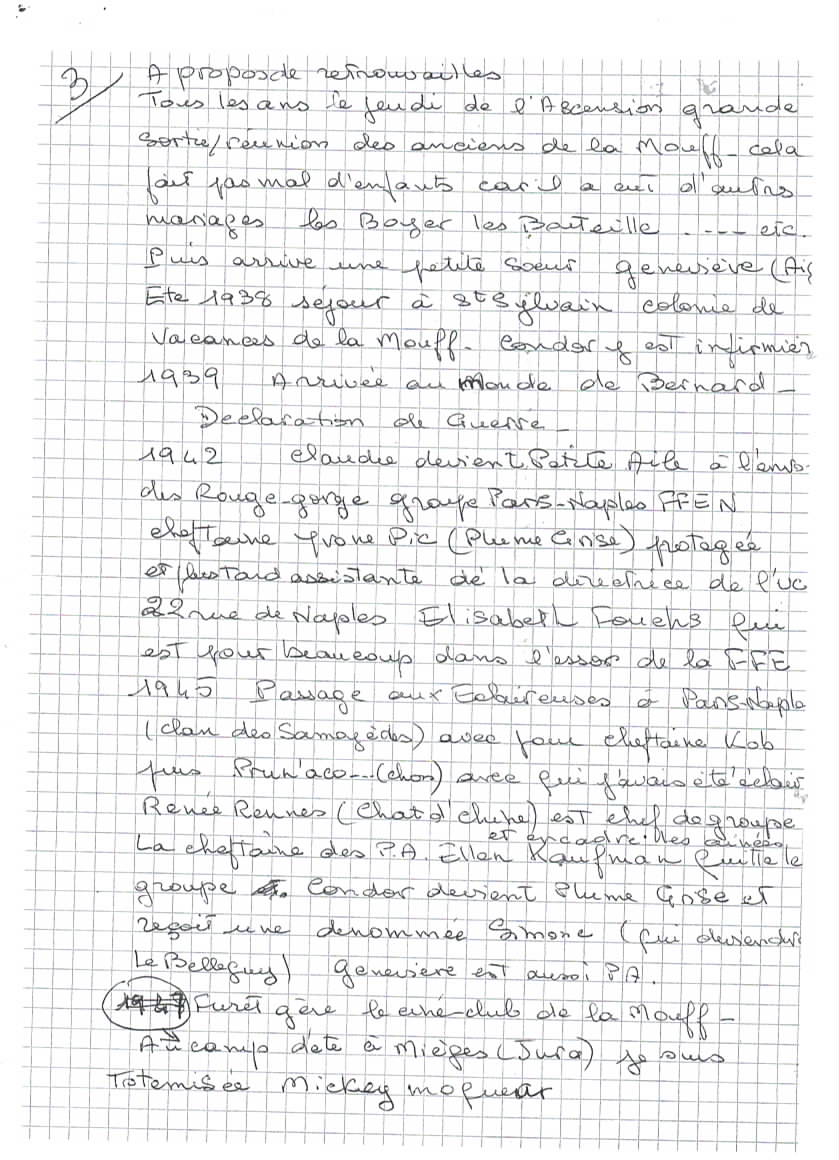 3/ A propos de retrouvailles
Tous les ans le jeudi de l'Ascension grande
sortie/réunion des anciens de la Mouff - cela
fait pas mal d'enfants car il a eut d'autres
mariages les Boyer les Batteille .---- etc.
Puis arrive une petite soeur geneviève (Aig
Ete 1938 séjour à St Sylvain colonie de
vacances de la Mouff. Condor y est infirmièr
1939 Arrivée au Monde de Bernard -
Declaration de Guerre -
1942 Claudie devient Petite Aile à l'env
des Rouge-gorge groupe Paris-Naples FFEN
cheftaine Yvone Pic (Plume Grise) protegée
et plus tard assistante de la directrice de l'UC
22 rue de Naples Elisabeth Fouchs qui
est pour beaucoup dans l'essor de la FFE
1945 Passage aux Eclaireuses à Paris-Naple
(clan des Samoyèdes) avec pour cheftaine Kob
puis Prun'aco...(chon) avec qui j'avais été éclair
Renée Rennes (Chat d'chine) est chef de groupe
et encadre les ainées
La cheftaine des P.A. Ellen Kaufman quitte le
groupe. Condor devient Plume Grise et
reçoit une denommée Simone (qui deviendra
Le Belleguy) genevieve est aussi P.A.
1947 Furêt gère le ciné-club de la Mouff -
Au camp d'été à Mièges (Jura) je suis
Totemisée Mickey moqueur